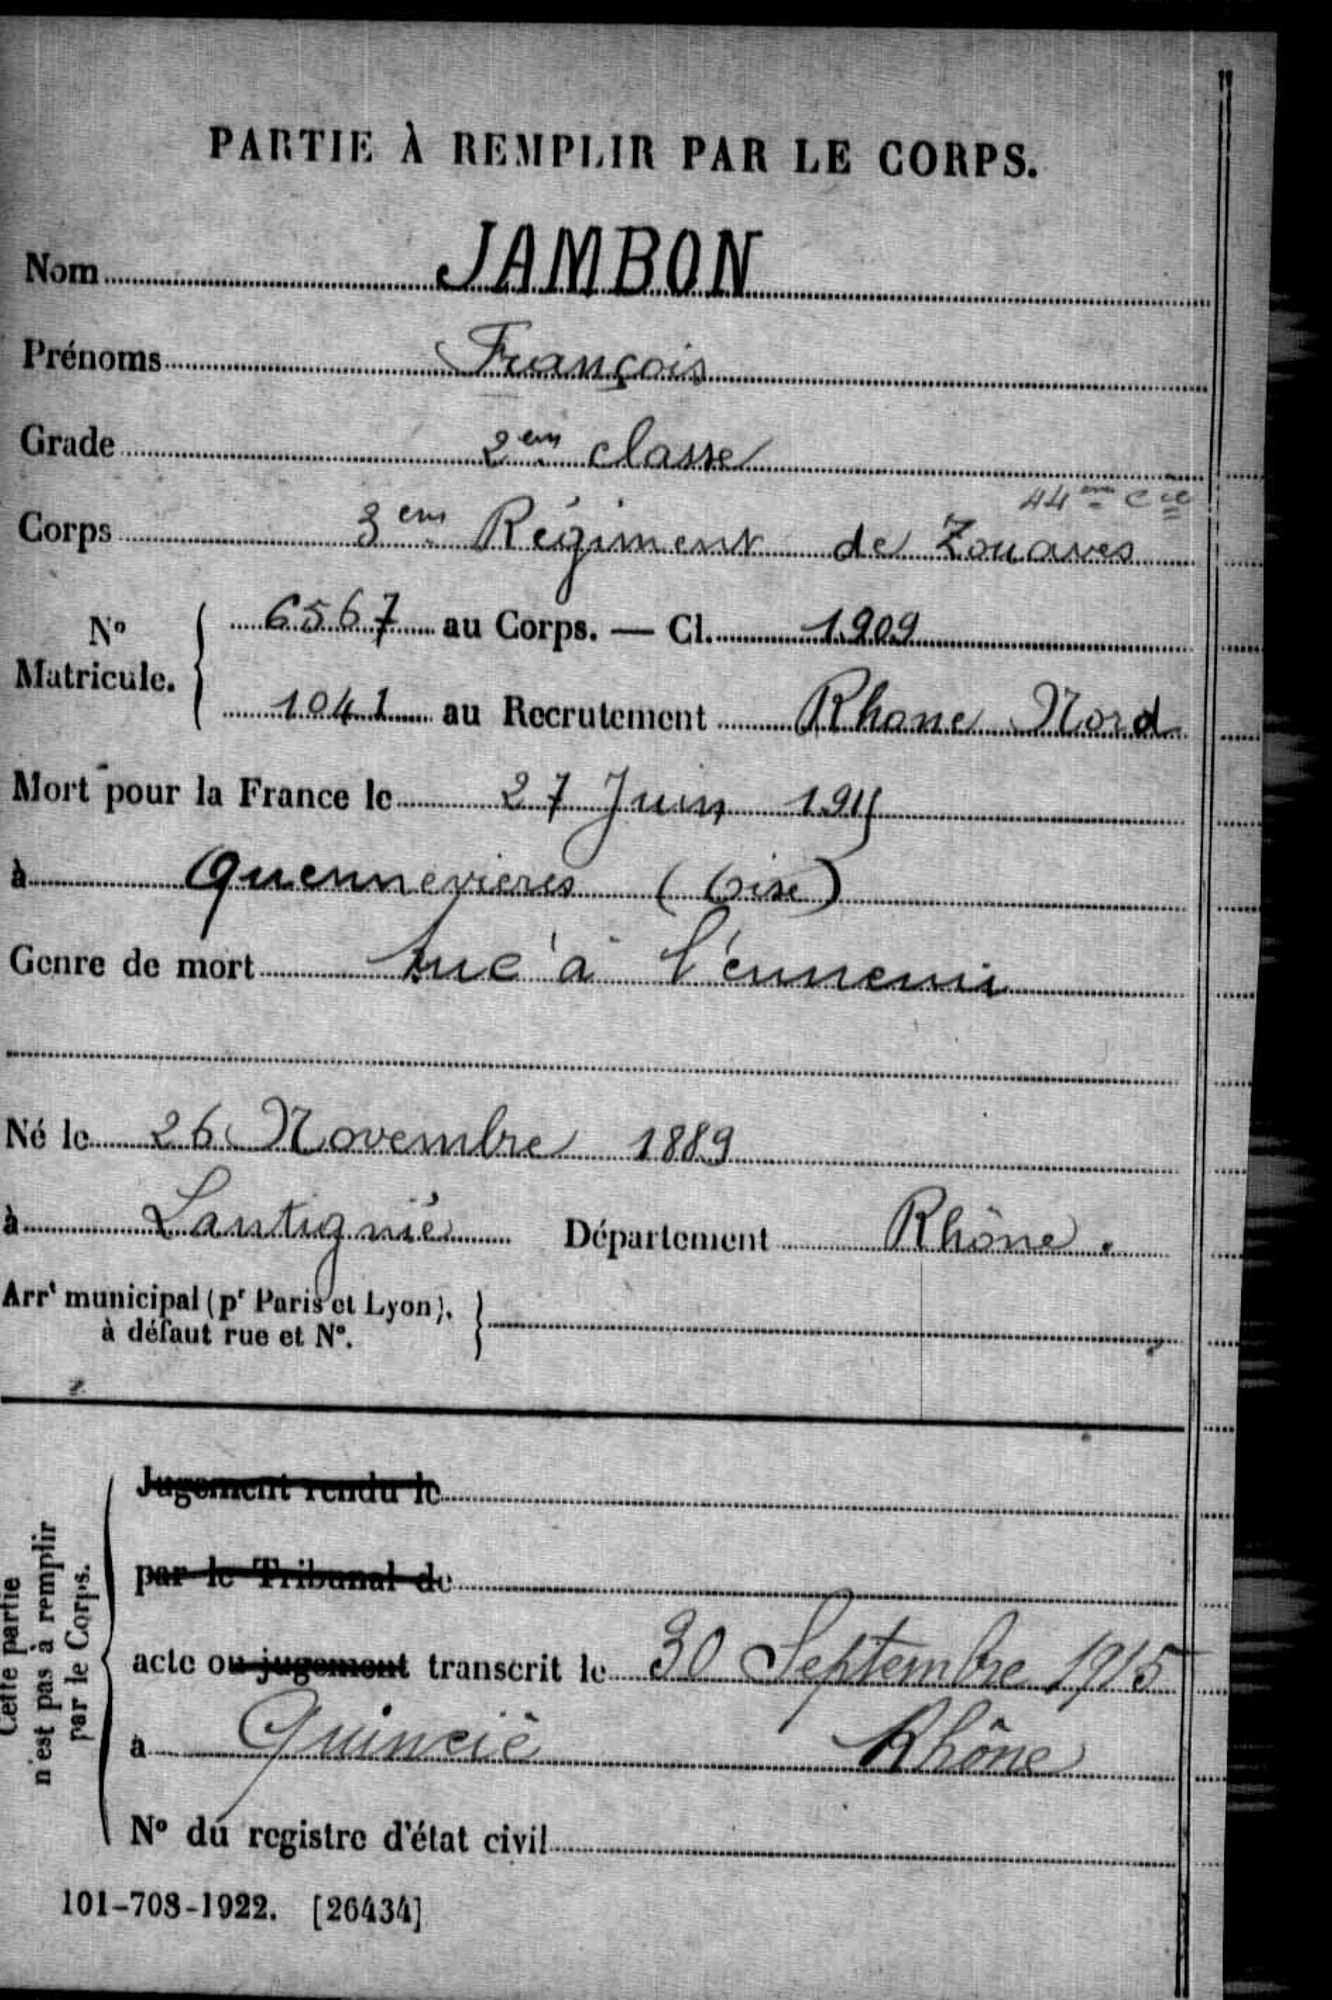 PARTIE À REMPLIR PAR LE CORPS.
Nom JAMBON
Prénoms François
Grade 2em classe
44me Cie
Corps 3em Régiment de Zouaves
N° Matricule. 6567 au Corps. — Cl. 1909
1041 au Recrutement Rhone Nord
Mort pour la France le 27 Juin 1915
à Quennevieres (Oise)
Genre de mort tué à l'ennemi
Né le 26 Novembre 1889
à Lantignié Département Rhône.
Arrt municipal (pr Paris et Lyon),
à défaut rue et N°.
Jugement rendu le
par le Tribunal de
acte ou jugement transcrit le 30 Septembre 1915
à Quincié Rhône
N° du registre d'état civil
Cette partie
n'est pas à remplir
par le Corps.
101-708-1922. [26434]